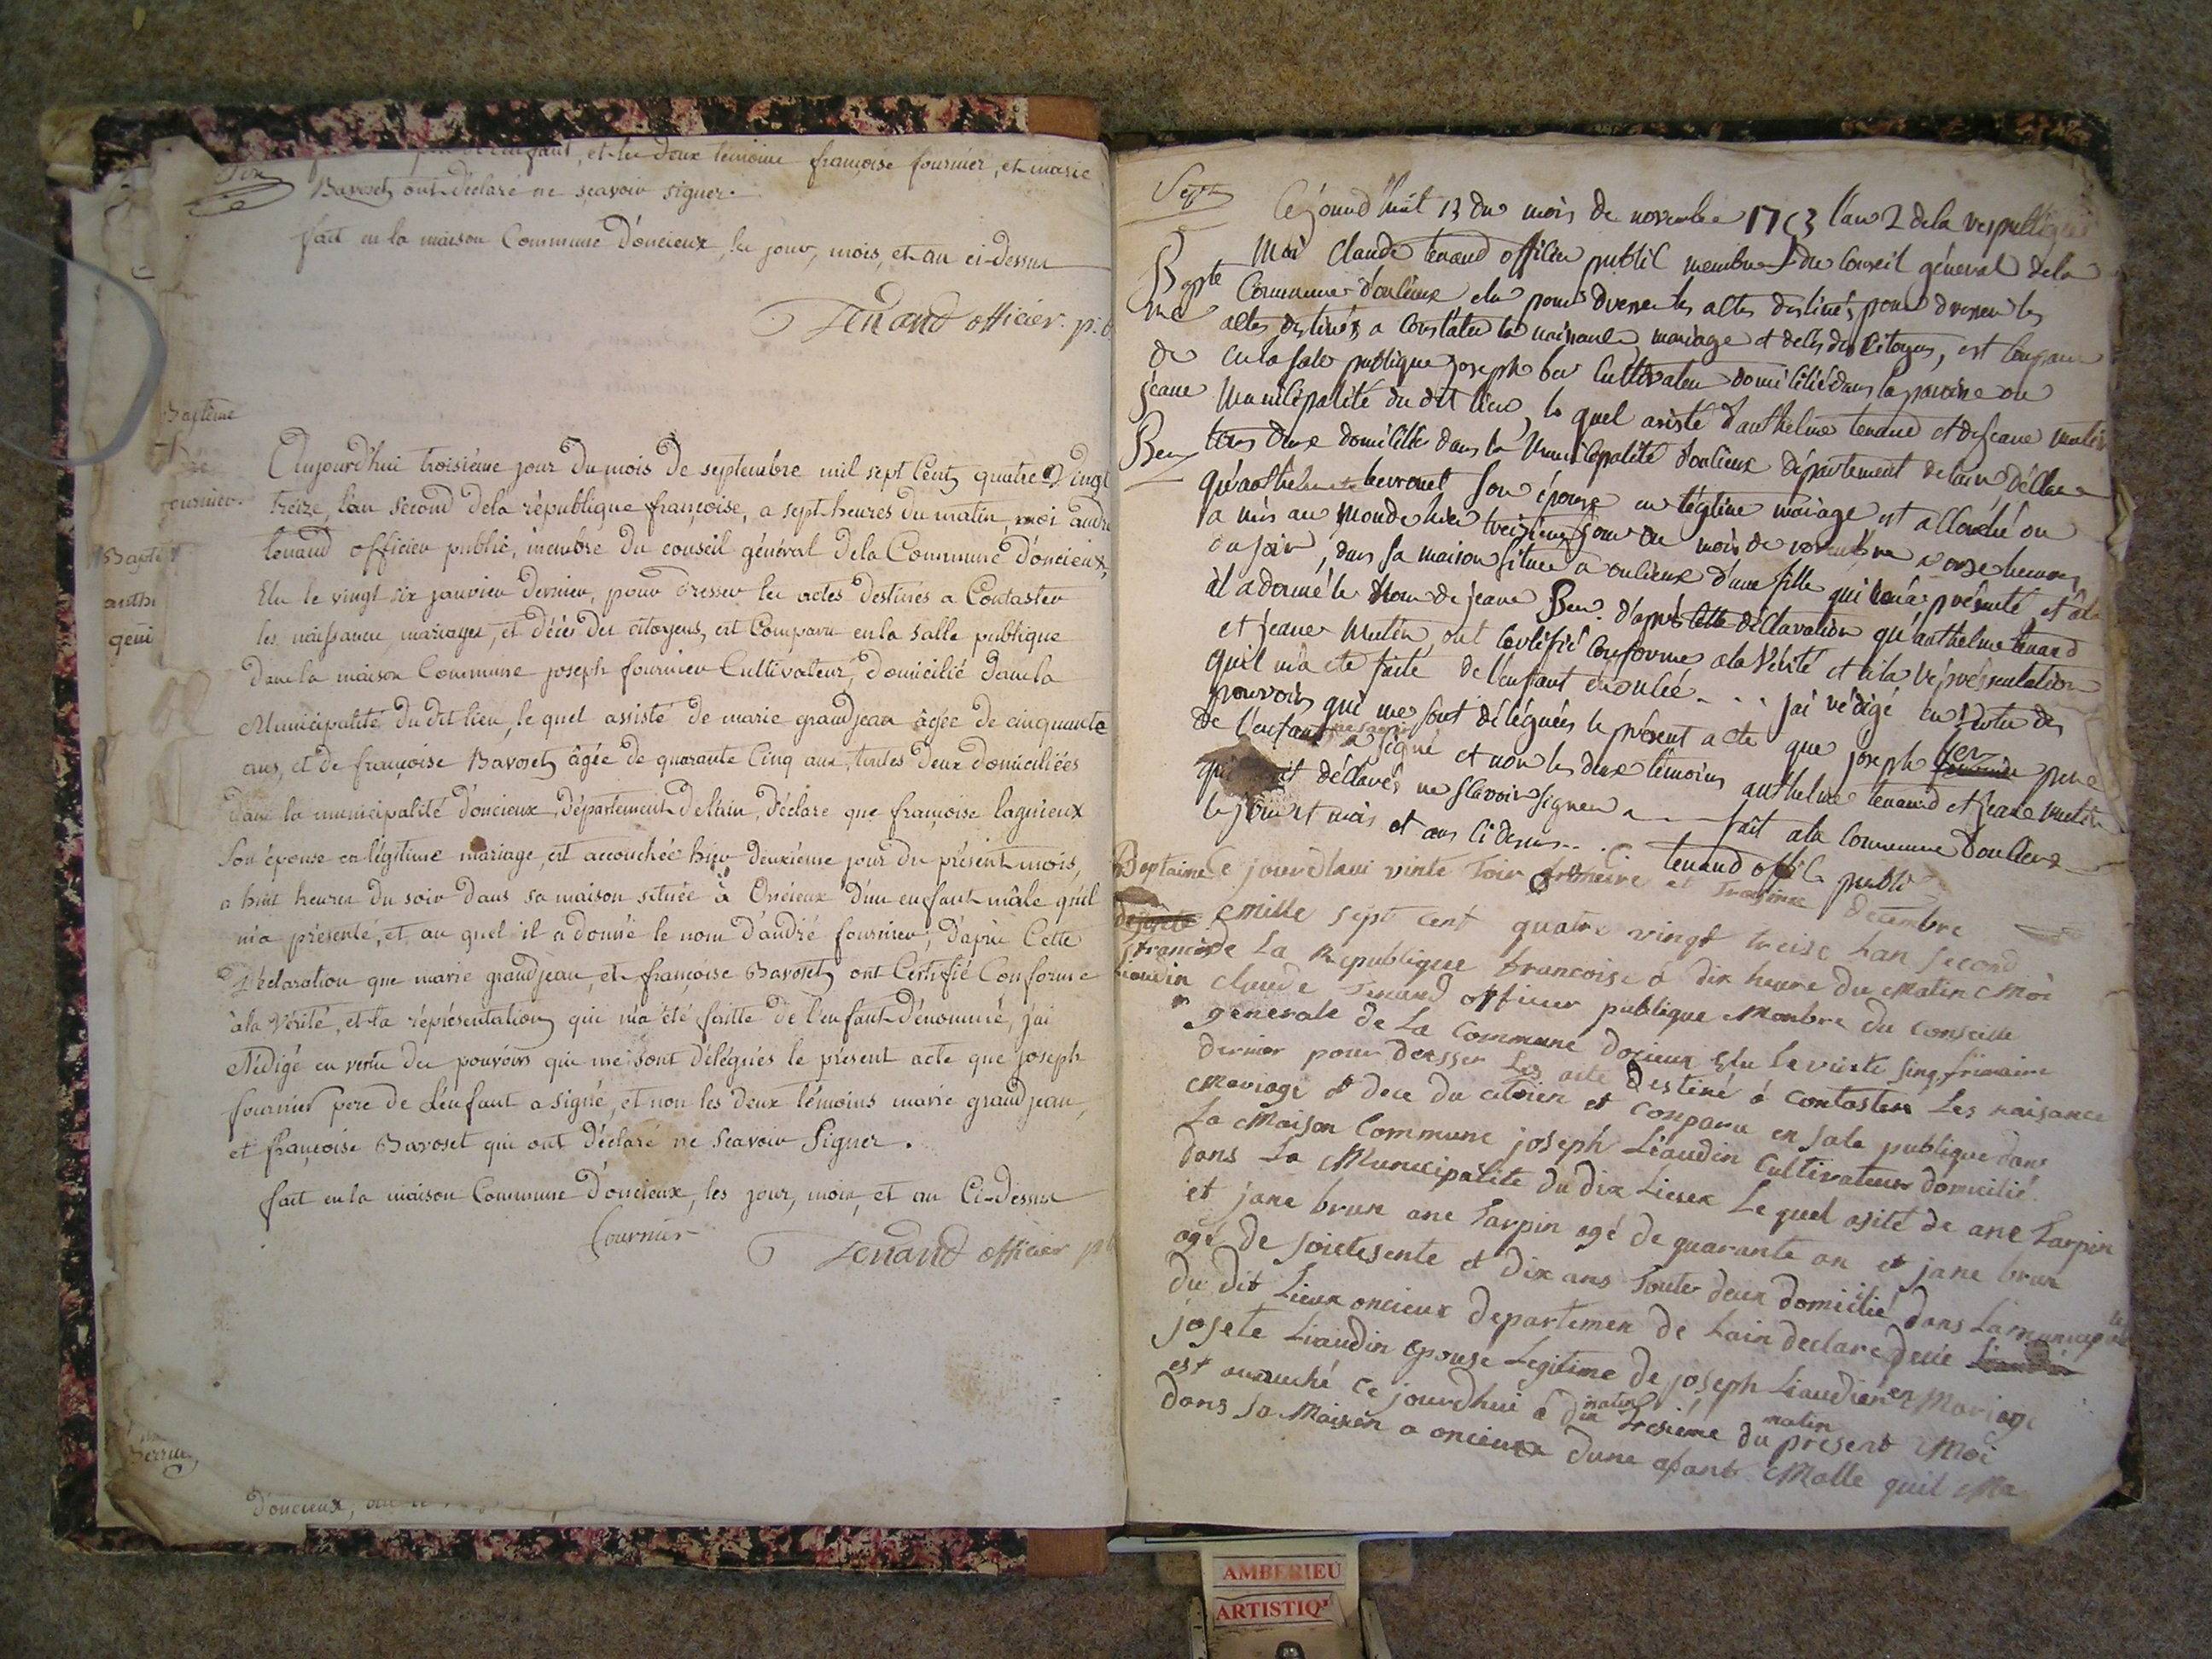 Six
père de l'enfant, et les deux temoins françoise fournier, et marie
Bavoset ont déclaré ne scavoir signer.
fait en la maison Commune d'oncieux, les jour, mois, et an ci-dessus
Tenand officier p.
Baptême
fournier
Aujourd'hui troisième jour du mois de septembre mil sept Cent quatre Vingt
treize, l'an second dela république françoise, a sept heures du matin, moi andré
tenand officier public, membre du conseil général dela Commune d'oncieux,
Elu le vingt six janvier dernier, pour dresser les actes destinés a Contaster
les naissances, mariages, et décès des citoyens, est Comparu en la salle publique
dans la maison Commune joseph fournier Cultivateur, domicilié dans la
Municipalité du dit lieu, le quel assisté de marie grandjean âgée de cinquante
ans, et de françoise Bavoset âgée de quarante Cinq ans, toutes deux domiciliées
dans la municipalité d'oncieux, département de l'ain, déclare que françoise lagnieux
Son épouse en légitime mariage, est accouchée hier deuxième jour du présent mois,
a huit heures du soir dans sa maison située à Oncieux d'un enfant mâle qu'il
m'a présenté, et au quel il a donné le nom d'andré fournier, d'après Cette
Déclaration que marie grandjean, et françoise Bavoset ont Certifié Conforme
à la Vérité, et la réprésentation qui m'a été faitte de l'enfant dénommé, j'ai
Rédigé en vertu des pouvoirs qui me sont délégués le présent acte que joseph
fournier pere de l'enfant a signé, et non les deux témoins marie grandjean,
et françoise Bavoset qui ont déclaré ne Scavoir Signer.
fait en la maison Commune d'oncieux, les jour, mois, et an Ci-Dessus
fournier
Tenand officier
d'oncieux,
Sept
Bapte
me
de
jeane
Ben
Cejourd'huit 13 du mois de novembre 1793 l'an 2 dela republique
Moi Claude tenand officier public membre du Conseil général dela
Commune d'oncieux elu pour dresser les actes destinés pour dresser les
actes destinés a Constater la naissance mariage et décès des Citoyens, est comparu
en la sale publique joseph ber Cultivateur domicilié dans la paroisse ou
Municipalité du dit lieu, le quel assisté d'anthelme tenand et de jeane mutin
tous deux domicilié dans la Municipalité d'oncieux département de lain, déclare
qu'anthelme bevronet son épouse en légitime mariage est accouché ou
a mis au monde hier treizieme jour du mois de novembre a onze heures
du soir, dans sa maison située a oncieux d'une fille qui m'a présenté, et à la
il a donné le Nom de jeane Ben. d'après cette déclaration qu'anthelme tenand
et jeane Mutin ont Certifié Conforme a la Vérité et à la réprésentation
qu'il m'a été faite de l'enfant énoncé . . . j'ai rédigé en Vertu des
pouvoirs qui me sont délégués le présent acte que joseph ber pere
de l'enfant a signé et non les deux témoins anthelme tenand et jeane mutin
qui ont déclarés ne scavoir signer . . . fait a la Commune d'oncieux
le jour et mois et an ci dessus . . . tenand offic. public
Baptaime
francois
Liaudin
Ce jourdhui vinte
et Troisime décembre
Mille sept cent quatre vingt treise Lan second
de La Republique francoise a dix heure du Matin Moi
claude Tenand officier publique Monbre du Conseille
generale de La Commune doncieux Elu le vinte sinq frimaire
dernier pour dresser Les acte Destiné à Contaster Les naisance
Mariage & dece du citoien et Comparu en Sale publique dans
La Maison Commune joseph Liaudin Cultivateur domicilié
dans La Municipalite du dix Lieux Le quel asité de ane Tarpin
et jane brun ane Tarpin agé de quarante an et jane brun
agé de soietesente et dix ans Toute deux domicilié dans La municipalite
du dit Lieux oncieux departemen de Lain declare
josete Liaudin epouse Legitime de joseph Liaudin en Mariage
est acouché ce jourdhui à dix matin Tresième du présent matin Moi
dans sa Maison a oncieux dune afant Malle quil Ma
AMBERIEU
ARTISTIQ'